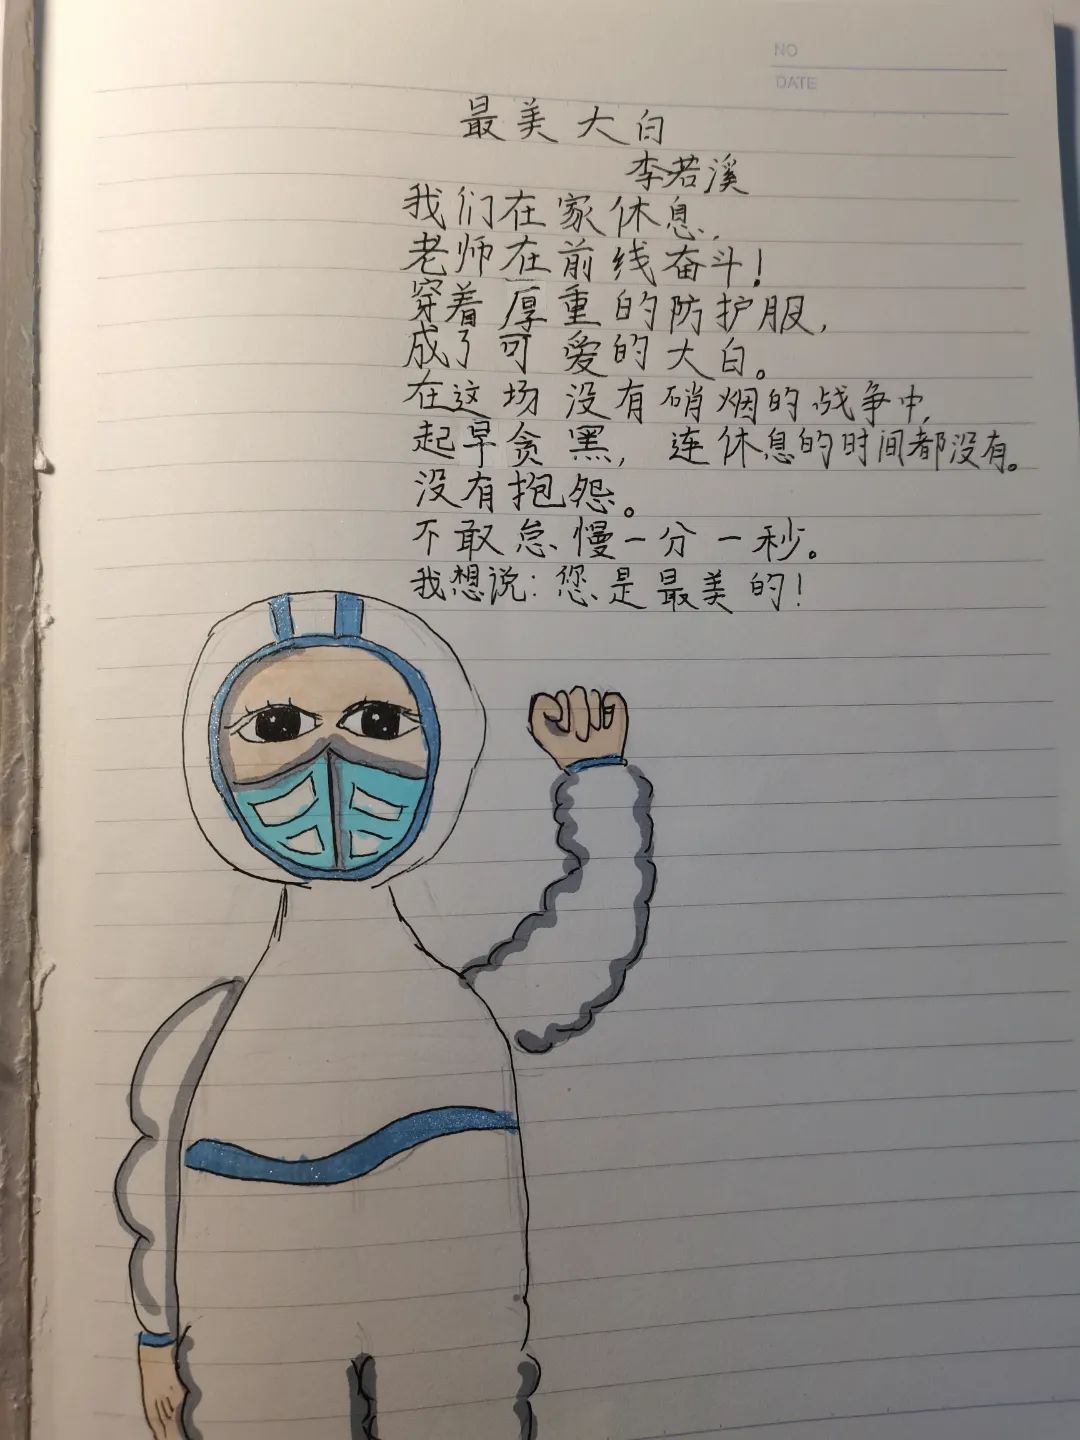 NO
DATE
最美大白
李若溪
我们在家休息,
老师在前线奋斗!
穿着厚重的防护服,
成了可爱的大白。
在这场没有硝烟的战争中,
起早贪黑, 连休息的时间都没有。
没有抱怨。
不敢怠慢一分一秒。
我想说:您是最美的!